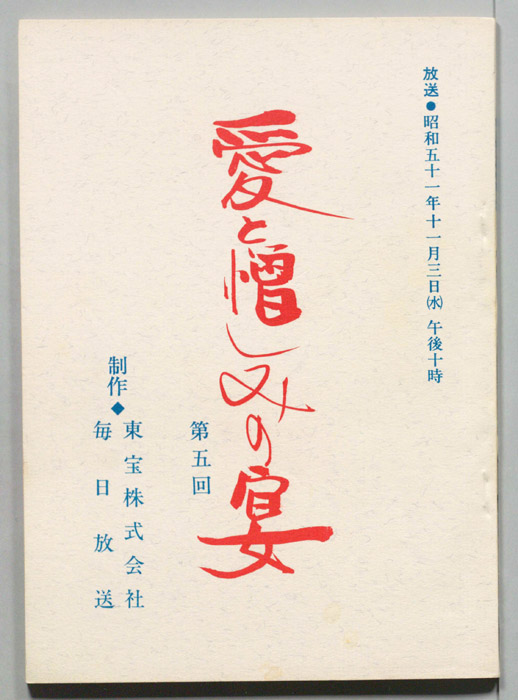 放送●昭和五十一年十一月三日㈬ 午後十時
愛と憎しみの宴
第五回
制作◆
東宝株式会社
毎日放送